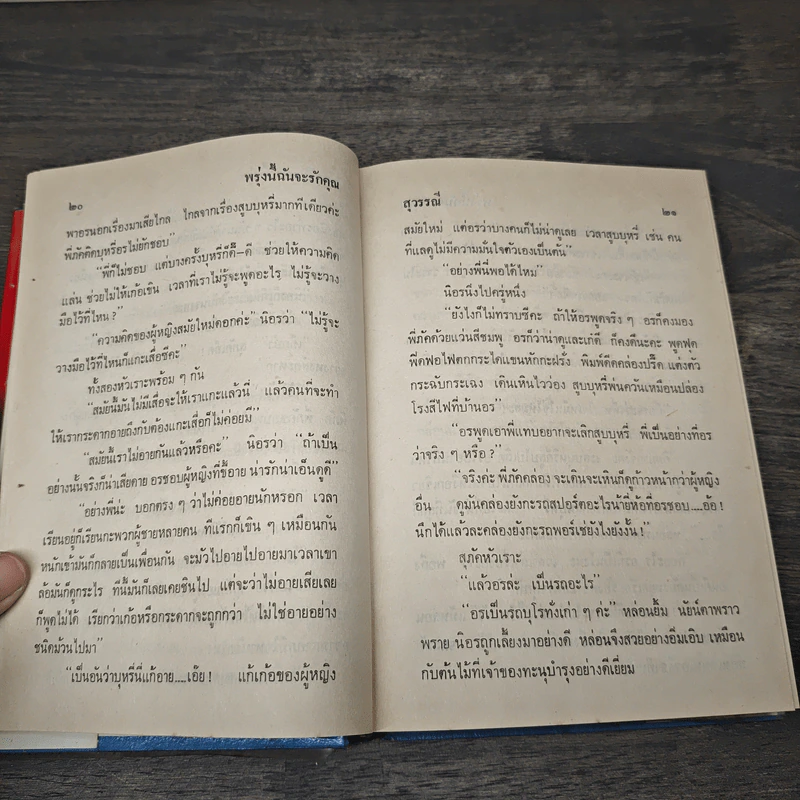 พรุ่งนี้ฉันจะรักคุณ
๒๐
พาอรนอกเรื่องมาเสียไกล ไกลจากเรื่องสูบบุหรี่มากทีเดียวค่ะ
พี่ภัคติดบุหรี่อรไม่ยักชอบ”
“พี่ก็ไม่ชอบ แต่บางครั้งบุหรี่ก็ดี๊—ดี ช่วยให้ความคิด
แล่น ช่วยไม่ให้เก้อเขิน เวลาที่เราไม่รู้จะพูดอะไร ไม่รู้จะวาง
มือไว้ที่ไหน ?”
“ความคิดของผู้หญิงสมัยใหม่ดอกค่ะ” นิอรว่า “ไม่รู้จะ
วางมือไว้ที่ไหนก็แกะเสื่อซีคะ”
ทั้งสองหัวเราะพร้อม ๆ กัน
“สมัยนี้มันไม่มีเสื่อจะให้เราแกะแล้วนี่ แล้วคนที่จะทำ
ให้เรากระดากอายถึงกับต้องแกะเสื่อก็ไม่ค่อยมี”
“สมัยนี้เราไม่อายกันแล้วหรือคะ” นิอรว่า “ถ้าเป็น
อย่างนั้นจริงก็น่าเสียดาย อรชอบผู้หญิงที่ขี้อาย น่ารักน่าเอ็นดูดี”
“อย่างพี่น่ะ บอกตรง ๆ ว่าไม่ค่อยอายนักหรอก เวลา
เรียนอยู่ก็เรียนกะพวกผู้ชายหลายคน ทีแรกก็เขิน ๆ เหมือนกัน
หนักเข้ามันก็กลายเป็นเพื่อนกัน จะมัวไปอายไปอายมาเวลาเขา
ล้อมันก็ดูกระไร ทีนี้มันก็เลยเคยชินไป แต่จะว่าไม่อายเสียเลย
ก็พูดไม่ได้ เรียกว่าเก้อหรือกระดากจะถูกกว่า ไม่ใช่อายอย่าง
ชนิดม้วนไปมา”
“เป็นอันว่าบุหรี่นี่แก้อาย.....เอ๊ย ! แก้เก้อของผู้หญิง
สุวรรณี
๒๑
สมัยใหม่ แต่อรว่าบางคนก็ไม่น่าดูเลย เวลาสูบบุหรี่ เช่น คน
ที่แลดูไม่มีความมั่นใจตัวเองเป็นต้น”
“อย่างพี่นี่พอได้ไหม”
นิอรนิ่งไปครู่หนึ่ง
“ยังไงก็ไม่ทราบซีคะ ถ้าให้อรพูดจริง ๆ อรก็คงมอง
พี่ภัคด้วยแว่นสีชมพู อรก็ว่าน่าดูและเก๋ดี ก็คงดีนะคะ พูดฟุด
ฟิดฟอไฟตกกระไดแขนหักกะฝรั่ง พิมพ์ดีดคล่องปรื๊ด แต่งตัว
กระฉับกระเฉง เดินเหินไวว่อง สูบบุหรี่พ่นควันเหมือนปล่อง
โรงสีไฟที่บ้านอร”
“อรพูดเอาพี่แทบอยากจะเลิกสูบบุหรี่ พี่เป็นอย่างที่อร
ว่าจริง ๆ หรือ ?”
“จริงค่ะ พี่ภัคคล่อง จะเดินจะเหินก็ดูก้าวหน้ากว่าผู้หญิง
อื่น ดูมันคล่องยังกะรถสปอร์ตอะไรน้ายี่ห้อที่อรชอบ.....อ้อ !
นึกได้แล้วละคล่องยังกะรถพอร์เช่ยังไงยังงั้น !”
สุภัคหัวเราะ
“แล้วอรล่ะ เป็นรถอะไร”
“อรเป็นรถบุโรทั่งเก่า ๆ ค่ะ” หล่อนยิ้ม นัยน์ตาพราว
พราย นิอรถูกเลี้ยงมาอย่างดี หล่อนจึงสวยอย่างอิ่มเอิบ เหมือน
กับต้นไม้ที่เจ้าของทะนุบำรุงอย่างดีเยี่ยม